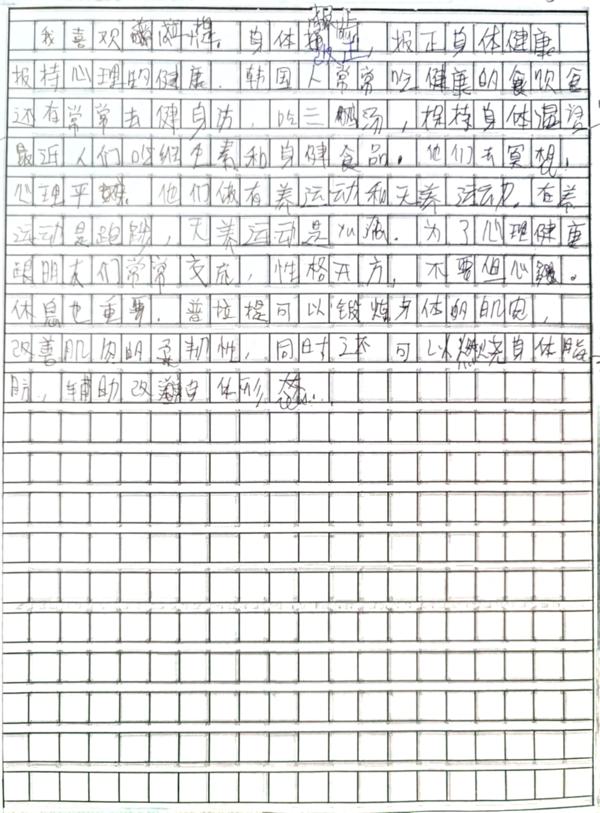 我喜欢 拉提. 身体 , 报正身体健康
报持心理的健康. 韩国人常常吃健康的食饮食
还有常常去健身访, 吃三 汤, 保持身体温
最近人们吃维生素和身健食品. 他们去冥想,
心理平 . 他们做有养运动和天养运动. 有养
运动是跑步, 天养运动是yu . 为了心理健康
跟朋友们常常交流, 性格开方, 不要但心 .
休息也重要. 普拉提可以锻炼身体的肌肉,
改善肌肉的柔韧性, 同时还可以燃烧身体脂
肪, 辅助改善身体形态.